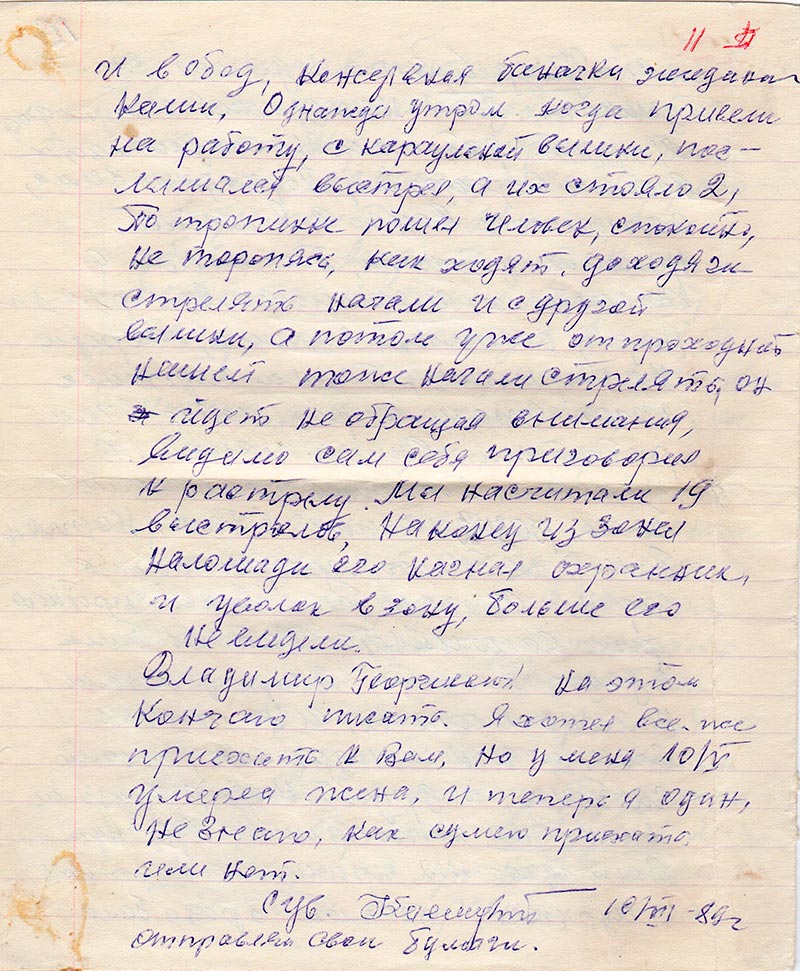 11
и в обод, консервная баночка
Однажды утром когда привели
на работу, с караульной вышки, пос-
лышался выстрел, а их стояло 2,
По тропинке пошел человек, спокойно,
не торопясь, как ходят доходяги
стрелять начали и с другой
вышки, а потом уже от проходной
нашей тоже начали стрелять, он
идет не обращая внимания,
видимо сам себя приговорил
к растрелу. Мы насчитали 19
выстрелов, наконец из зоны
на лошади его нагнал охранник,
и уволок в зону, больше его
не видели.
Владимир Георгиевич на этом
кончаю писать. Я хотел все-же
приехать к Вам, но у меня 10/IV
умерла жена, и теперь я один,
не знаю, как сумею приехать
или нет.
С ув. 10/VII-89 г
отправляю свои бумаги.